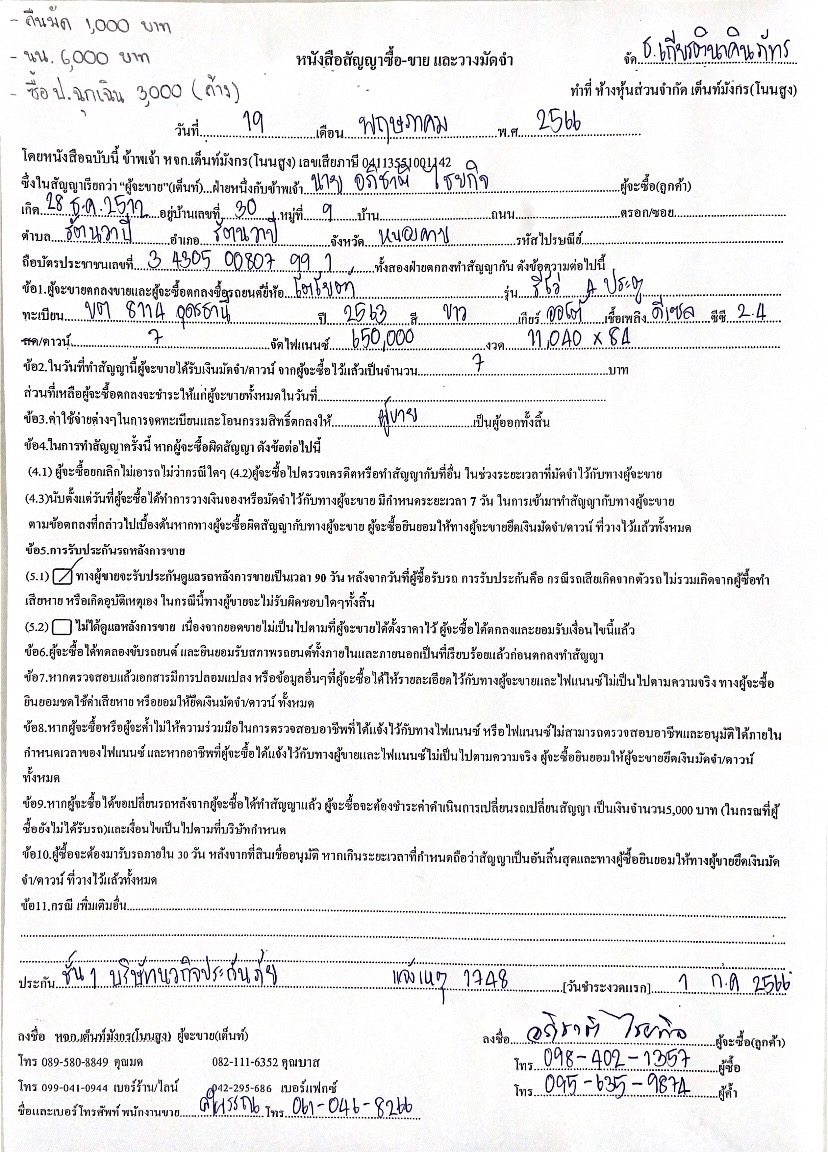 - คืนมัด 1,000 บาท
- นน. 6,000 บาท
- ซื้อ ป.ฉุกเฉิน 3,000 (ค้าง)
หนังสือสัญญาซื้อ-ขาย และวางมัดจำ
จัด ธ.เกียรตินาคินภัทร
ทำที่ ห้างหุ้นส่วนจำกัด เต็นท์มังกร(โนนสูง)
วันที่ 19 เดือน พฤษภาคม พ.ศ 2566
โดยหนังสือฉบับนี้ ข้าพเจ้า หจก.เต็นท์มังกร(โนนสูง) เลขเสียภาษี 04113551001142
ซึ่งในสัญญาเรียกว่า "ผู้จะขาย"(เต็นท์)...ฝ่ายหนึ่งกับข้าพเจ้า นาย อภิชาติ ไชยกิจ ผู้จะซื้อ(ลูกค้า)
เกิด 28 ธ.ค. 2512 อยู่บ้านเลขที่ 30 หมู่ที่ 9 บ้าน ถนน ตรอก/ซอย
ตำบล รัตนวาปี อำเภอ รัตนวาปี จังหวัด หนองคาย รหัสไปรษณีย์
ถือบัตรประชาชนเลขที่ 3 4305 00807 99 1 ทั้งสองฝ่ายตกลงทำสัญญากัน ดังข้อความต่อไปนี้
ข้อ1.ผู้จะขายตกลงขายและผู้จะซื้อตกลงซื้อรถยนต์ยี่ห้อ โตโยต้า รุ่น รีโว่ 4 ประตู
ทะเบียน ขต 8114 อุดรธานี ปี 2563 สี ขาว เกียร์ ออโต้ เชื้อเพลิง ดีเซล ซีซี 2.4
สด/ดาวน์ 7 จัดไฟแนนซ์ 650,000 งวด 11,040 x 84
ข้อ2.ในวันที่ทำสัญญานี้ผู้จะขายได้รับเงินมัดจำ/ดาวน์ จากผู้จะซื้อไว้แล้วเป็นจำนวน 7 บาท
ส่วนที่เหลือผู้จะซื้อตกลงจะชำระให้แก่ผู้จะขายทั้งหมดในวันที่
ข้อ3.ค่าใช้จ่ายต่างๆในการจดทะเบียนและโอนกรรมสิทธิ์ตกลงให้ ผู้ขาย เป็นผู้ออกทั้งสิ้น
ข้อ4.ในการทำสัญญาครั้งนี้ หากผู้จะซื้อผิดสัญญา ดังข้อต่อไปนี้
(4.1) ผู้จะซื้อยกเลิกไม่เอารถไม่ว่ากรณีใดๆ (4.2)ผู้จะซื้อไปตรวจเครดิตหรือทำสัญญากับที่อื่น ในช่วงระยะเวลาที่มัดจำไว้กับทางผู้จะขาย
(4.3)นับตั้งแต่วันที่ผู้จะซื้อได้ทำการวางเงินจองหรือมัดจำไว้กับทางผู้จะขาย มีกำหนดระยะเวลา 7 วัน ในการเข้ามาทำสัญญากับทางผู้จะขาย
ตามข้อตกลงที่กล่าวไปเบื้องต้นหากทางผู้จะซื้อผิดสัญญากับทางผู้จะขาย ผู้จะซื้อยินยอมให้ทางผู้จะขายยึดเงินมัดจำ/ดาวน์ ที่วางไว้แล้วทั้งหมด
ข้อ5.การรับประกันรถหลังการขาย
(5.1) ทางผู้ขายจะรับประกันดูแลรถหลังการขายเป็นเวลา 90 วัน หลังจากวันที่ผู้ซื้อรับรถ การรับประกันคือ กรณีรถเสียเกิดจากตัวรถไม่รวมเกิดจากผู้ซื้อทำ
เสียหาย หรือเกิดอุบัติเหตุเอง ในกรณีนี้ทางผู้ขายจะไม่รับผิดชอบใดๆทั้งสิ้น
(5.2) ไม่ได้ดูแลหลังการขาย เนื่องจากยอดขายไม่เป็นไปตามที่ผู้จะขายได้ตั้งราคาไว้ ผู้จะซื้อได้ตกลงและยอมรับเงื่อนไขนี้แล้ว
ข้อ6.ผู้จะซื้อได้ทดลองขับรถยนต์ และยินยอมรับสภาพรถยนต์ทั้งภายในและภายนอกเป็นที่เรียบร้อยแล้วก่อนตกลงทำสัญญา
ข้อ7.หากตรวจสอบแล้วเอกสารมีการปลอมแปลง หรือข้อมูลอื่นๆที่ผู้จะซื้อได้ให้รายละเอียดไว้กับทางผู้จะขายและไฟแนนซ์ไม่เป็นไปตามความจริง ทางผู้จะซื้อ
ยินยอมชดใช้ค่าเสียหาย หรือยอมให้ยึดเงินมัดจำ/ดาวน์ ทั้งหมด
ข้อ8.หากผู้จะซื้อหรือผู้จะค้ำไม่ให้ความร่วมมือในการตรวจสอบอาชีพที่ได้แจ้งไว้กับทางไฟแนนซ์ หรือไฟแนนซ์ไม่สามารถตรวจสอบอาชีพและอนุมัติได้ภายใน
กำหนดเวลาของไฟแนนซ์ และหากอาชีพที่ผู้จะซื้อได้แจ้งไว้กับทางผู้ขายและไฟแนนซ์ไม่เป็นไปตามความจริง ผู้จะซื้อยินยอมให้ผู้จะขายยึดเงินมัดจำ/ดาวน์
ทั้งหมด
ข้อ9.หากผู้จะซื้อได้ขอเปลี่ยนรถหลังจากผู้จะซื้อได้ทำสัญญาแล้ว ผู้จะซื้อจะต้องชำระค่าดำเนินการเปลี่ยนรถเปลี่ยนสัญญา เป็นเงินจำนวน5,000 บาท (ในกรณที่ผู้
ซื้อยังไม่ได้รับรถ)และเงื่อนไขเป็นไปตามที่บริษัทกำหนด
ข้อ10.ผู้ซื้อจะต้องมารับรถภายใน 30 วัน หลังจากที่สินเชื่ออนุมัติ หากเกินระยะเวลาที่กำหนดถือว่าสัญญาเป็นอันสิ้นสุดและทางผู้ซื้อยินยอมให้ทางผู้ขายยึดเงินมัด
จำ/ดาวน์ ที่วางไว้แล้วทั้งหมด
ข้อ11.กรณี เพิ่มเติมอื่น
ประกัน ชั้น 1 บริษัทนวกิจประกันภัย แจ้งเหตุ 1748 [วันชำระงวดแรก] 1 ก.ค 2566
ลงชื่อ หจก.เต็นท์มังกร(โนนสูง) ผู้จะขาย(เต็นท์)
ลงชื่อ อภิชาติ ไชยกิจ ผู้จะซื้อ(ลูกค้า)
โทร 089-580-8849 คุณมด 082-111-6352 คุณบาส
โทร 098-402-1357 ผู้ซื้อ
โทร 099-041-0944 เบอร์ร้าน/ไลน์ 042-295-686 เบอร์แฟกซ์
โทร 095-635-9874 ผู้ค้ำ
ชื่อและเบอร์โทรศัพท์ พนักงานขาย โทร 061-046-8266